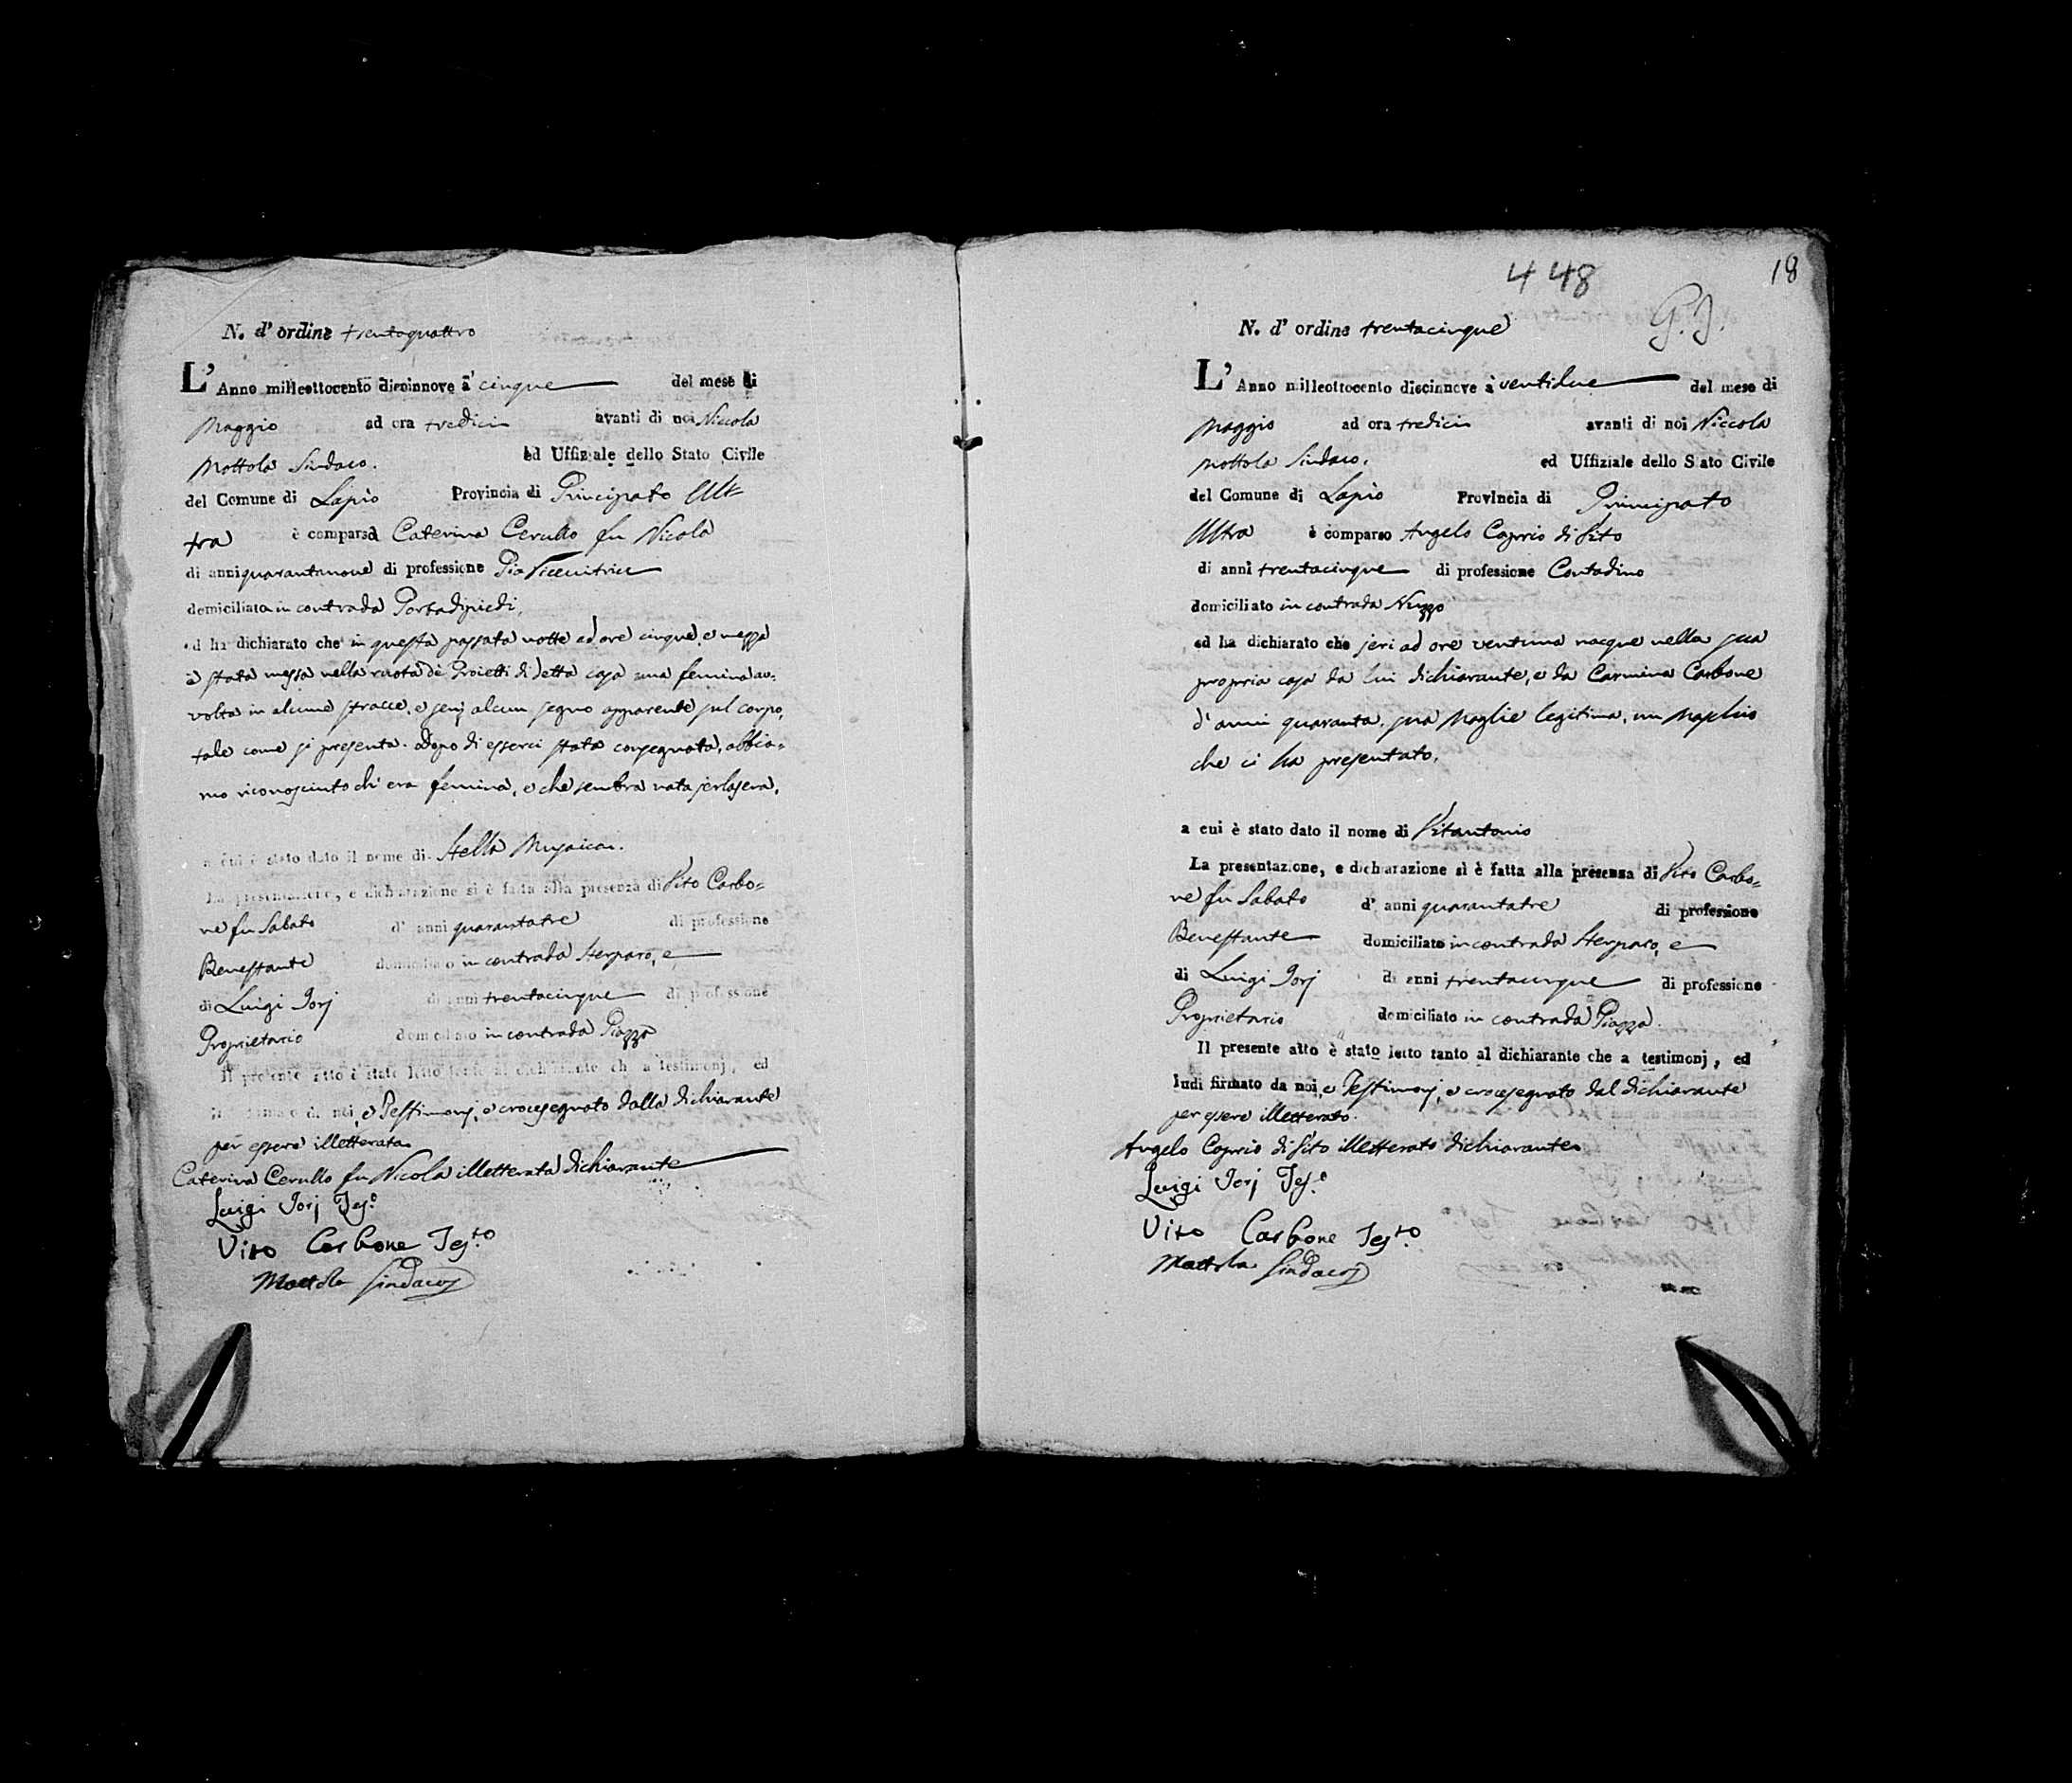 N. d' ordine trentaquattro
L' Anno milleottocento diecinnove a' cinque del mese di
Maggio ad ora tredici avanti di noi Niccola
Mottola Sindaco. ed Uffiziale dello Stato Civile
del Comune di Lapio Provincia di Principato Ul=
tra è comparsa Caterina Cerullo fu Nicola
di anni quarantanove di professione Pia Ricevitrice
domiciliata in contrada Portadipiedi.
ed ha dichiarato che in questa passata notte ad ore cinque, e mezza
è stata messa nella ruota de Proietti di detta casa una femina av=
volta in alcune stracce, e senz alcun segno apparente sul corpo,
tale come si presenta. Dopo di esserci stata consegnata, abbia=
mo riconosciuto ch' era femina, e che sembra nata jerlasera.
a cui è stato dato il nome di Stella
La presentazione, e dichiarazione si è fatta alla presenza di Vito Carbo=
ne fu Sabato d' anni quarantatre di professione
Benestante domiciliato in contrada Sterparo, e
di Luigi Jorj di anni trentacinque di professione
Proprietario domiciliato in contrada Piazza
Il presente atto è stato letto tanto al dichiarante che a testimonj, ed
Indi firmato da noi, e Testimonj, e crocesegnato dalla dichiarante
per essere illetterata.
Caterina Cerullo fu Nicola illetterata dichiarante
Luigi Jorj Tes.º
Vito Carbone Tes.to
Mottola Sindaco
448
18
G. J.
N. d' ordine trentacinque
L' Anno milleottocento diecinnove a ventidue del mese di
Maggio ad ora tredici avanti di noi Niccola
Mottola Sindaco. ed Uffiziale dello Stato Civile
del Comune di Lapio Provincia di Principato
Ultra è comparso Angelo Caprio di Vito
di anni trentacinque di professione Contadino
domiciliato in contrada Nuzzo
ed ha dichiarato che jeri ad ore ventuna nacque nella sua
propria casa da lui dichiarante, e da Carmina Carbone
d' anni quaranta, sua Moglie legitima, un Maschio
che ci ha presentato.
a cui è stato dato il nome di Vitantonio
La presentazione, e dichiarazione si è fatta alla presenza di Vito Carbo=
ne fu Sabato d' anni quarantatre di professione
Benestante domiciliato in contrada Sterparo, e
di Luigi Jorj di anni trentacinque di professione
Proprietario domiciliato in contrada Piazza.
Il presente atto è stato letto tanto al dichiarante che a testimonj, ed
Indi firmato da noi, e Testimonj, e crocesegnato dal dichiarante
per essere illetterato.
Angelo Caprio di Vito illetterato dichiarante
Luigi Jorj Tes.º
Vito Carbone Tes.to
Mottola Sindaco